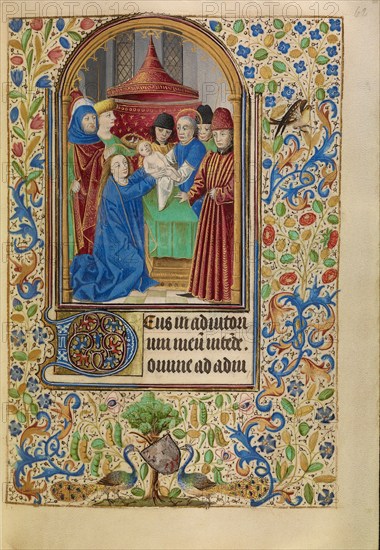 Deus in adiutori
um meū intēde.
Domine ad adiu